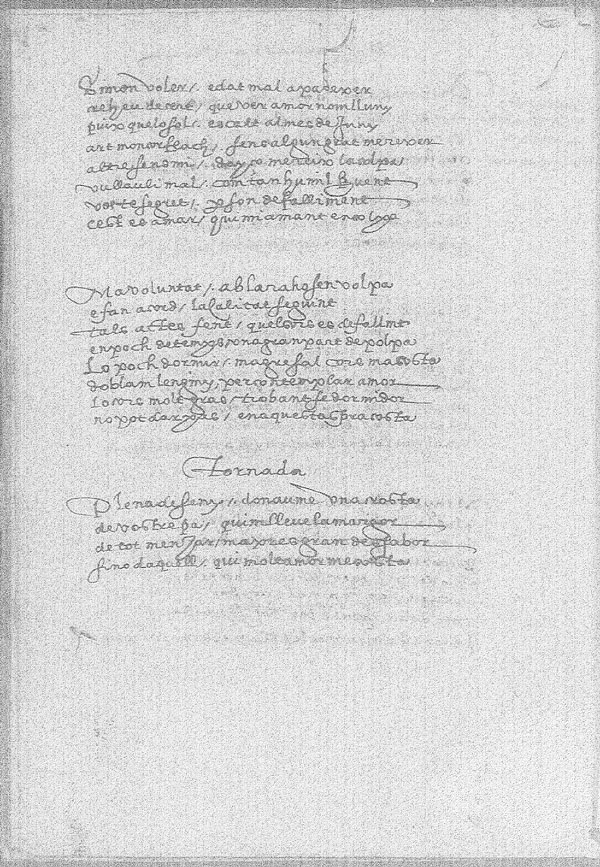 Simon voler / . edat mal aparexer
veheu decert / que ver amor nom lluny
puix que lo sol / . escalf al mes de Juny
ant mon cor flach / . sens algun grat merexer
altre sens mi / . daço mereix la colpa
vullau li mal / . com tan humil Svent
vos te segret / y son defalliment
cest es amar / qui mi amant encolpa
Ma voluntat / . ab la raho senvolpa
e fan acord / la qualitat seguint
tals actes fent / quel cors es defallint
en poch de temps / una gran part de polpa
Lo poch dormir / . magresa al cors macosta
doblam lengíny / per contemplar amor
Lo cors molt gras / trobantse dormidor
no pot dar pas / en aquesta aspra costa
Tornada
Plena de seny / . donaume una crosta
de vostre pa / quim lleve la margor
de tot menjar / ma pres gran desabor
sino daquell / . qui molt amor me costa